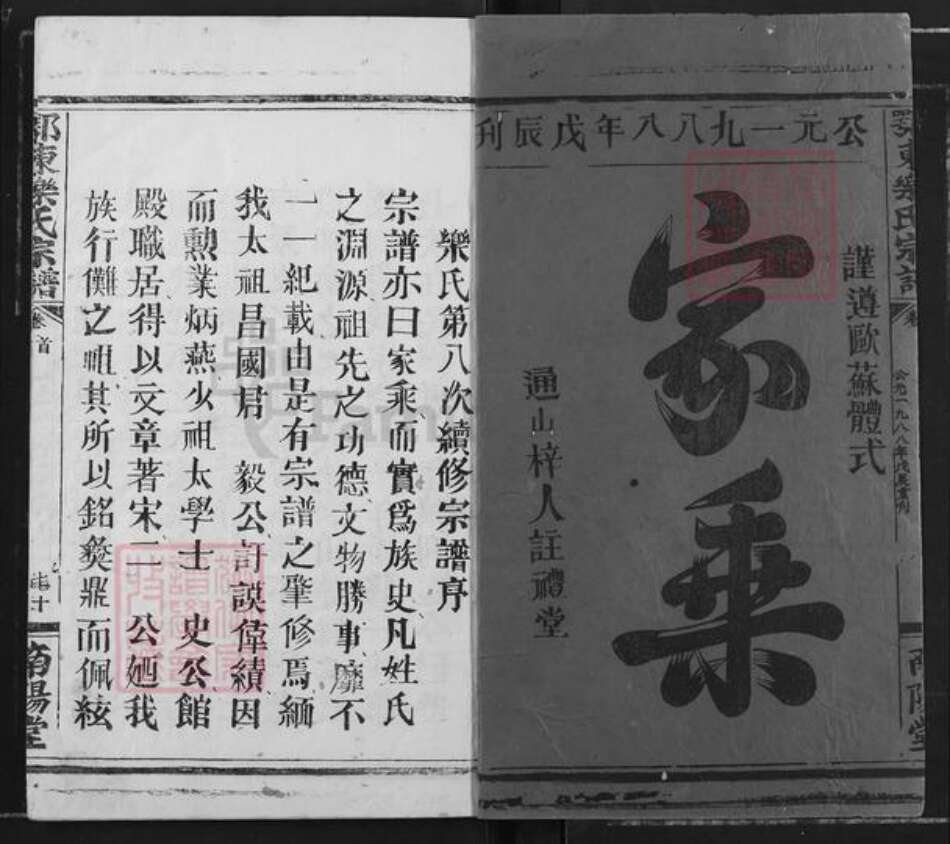 鄂東樂氏宗譜
公元一九八八年戊辰重刊
南陽堂
公元一九八八年戊辰刊
謹遵歐蘇體式
家乘
通山梓人註禮堂
樂氏第八次續修宗譜序
宗譜亦曰家乘而實爲族史凡姓氏
之淵源祖先之功德文物勝事靡不
一一紀載由是有宗譜之肇修焉緬
我太祖昌國君 毅公訏謨偉績因
而勳業炳燕少祖太學士 史公館
殿職居得以文章著宋二 公廼我
族行儺之咀其所以銘彜鼎而佩絃
鄂東樂氏宗譜
卷首
南陽堂